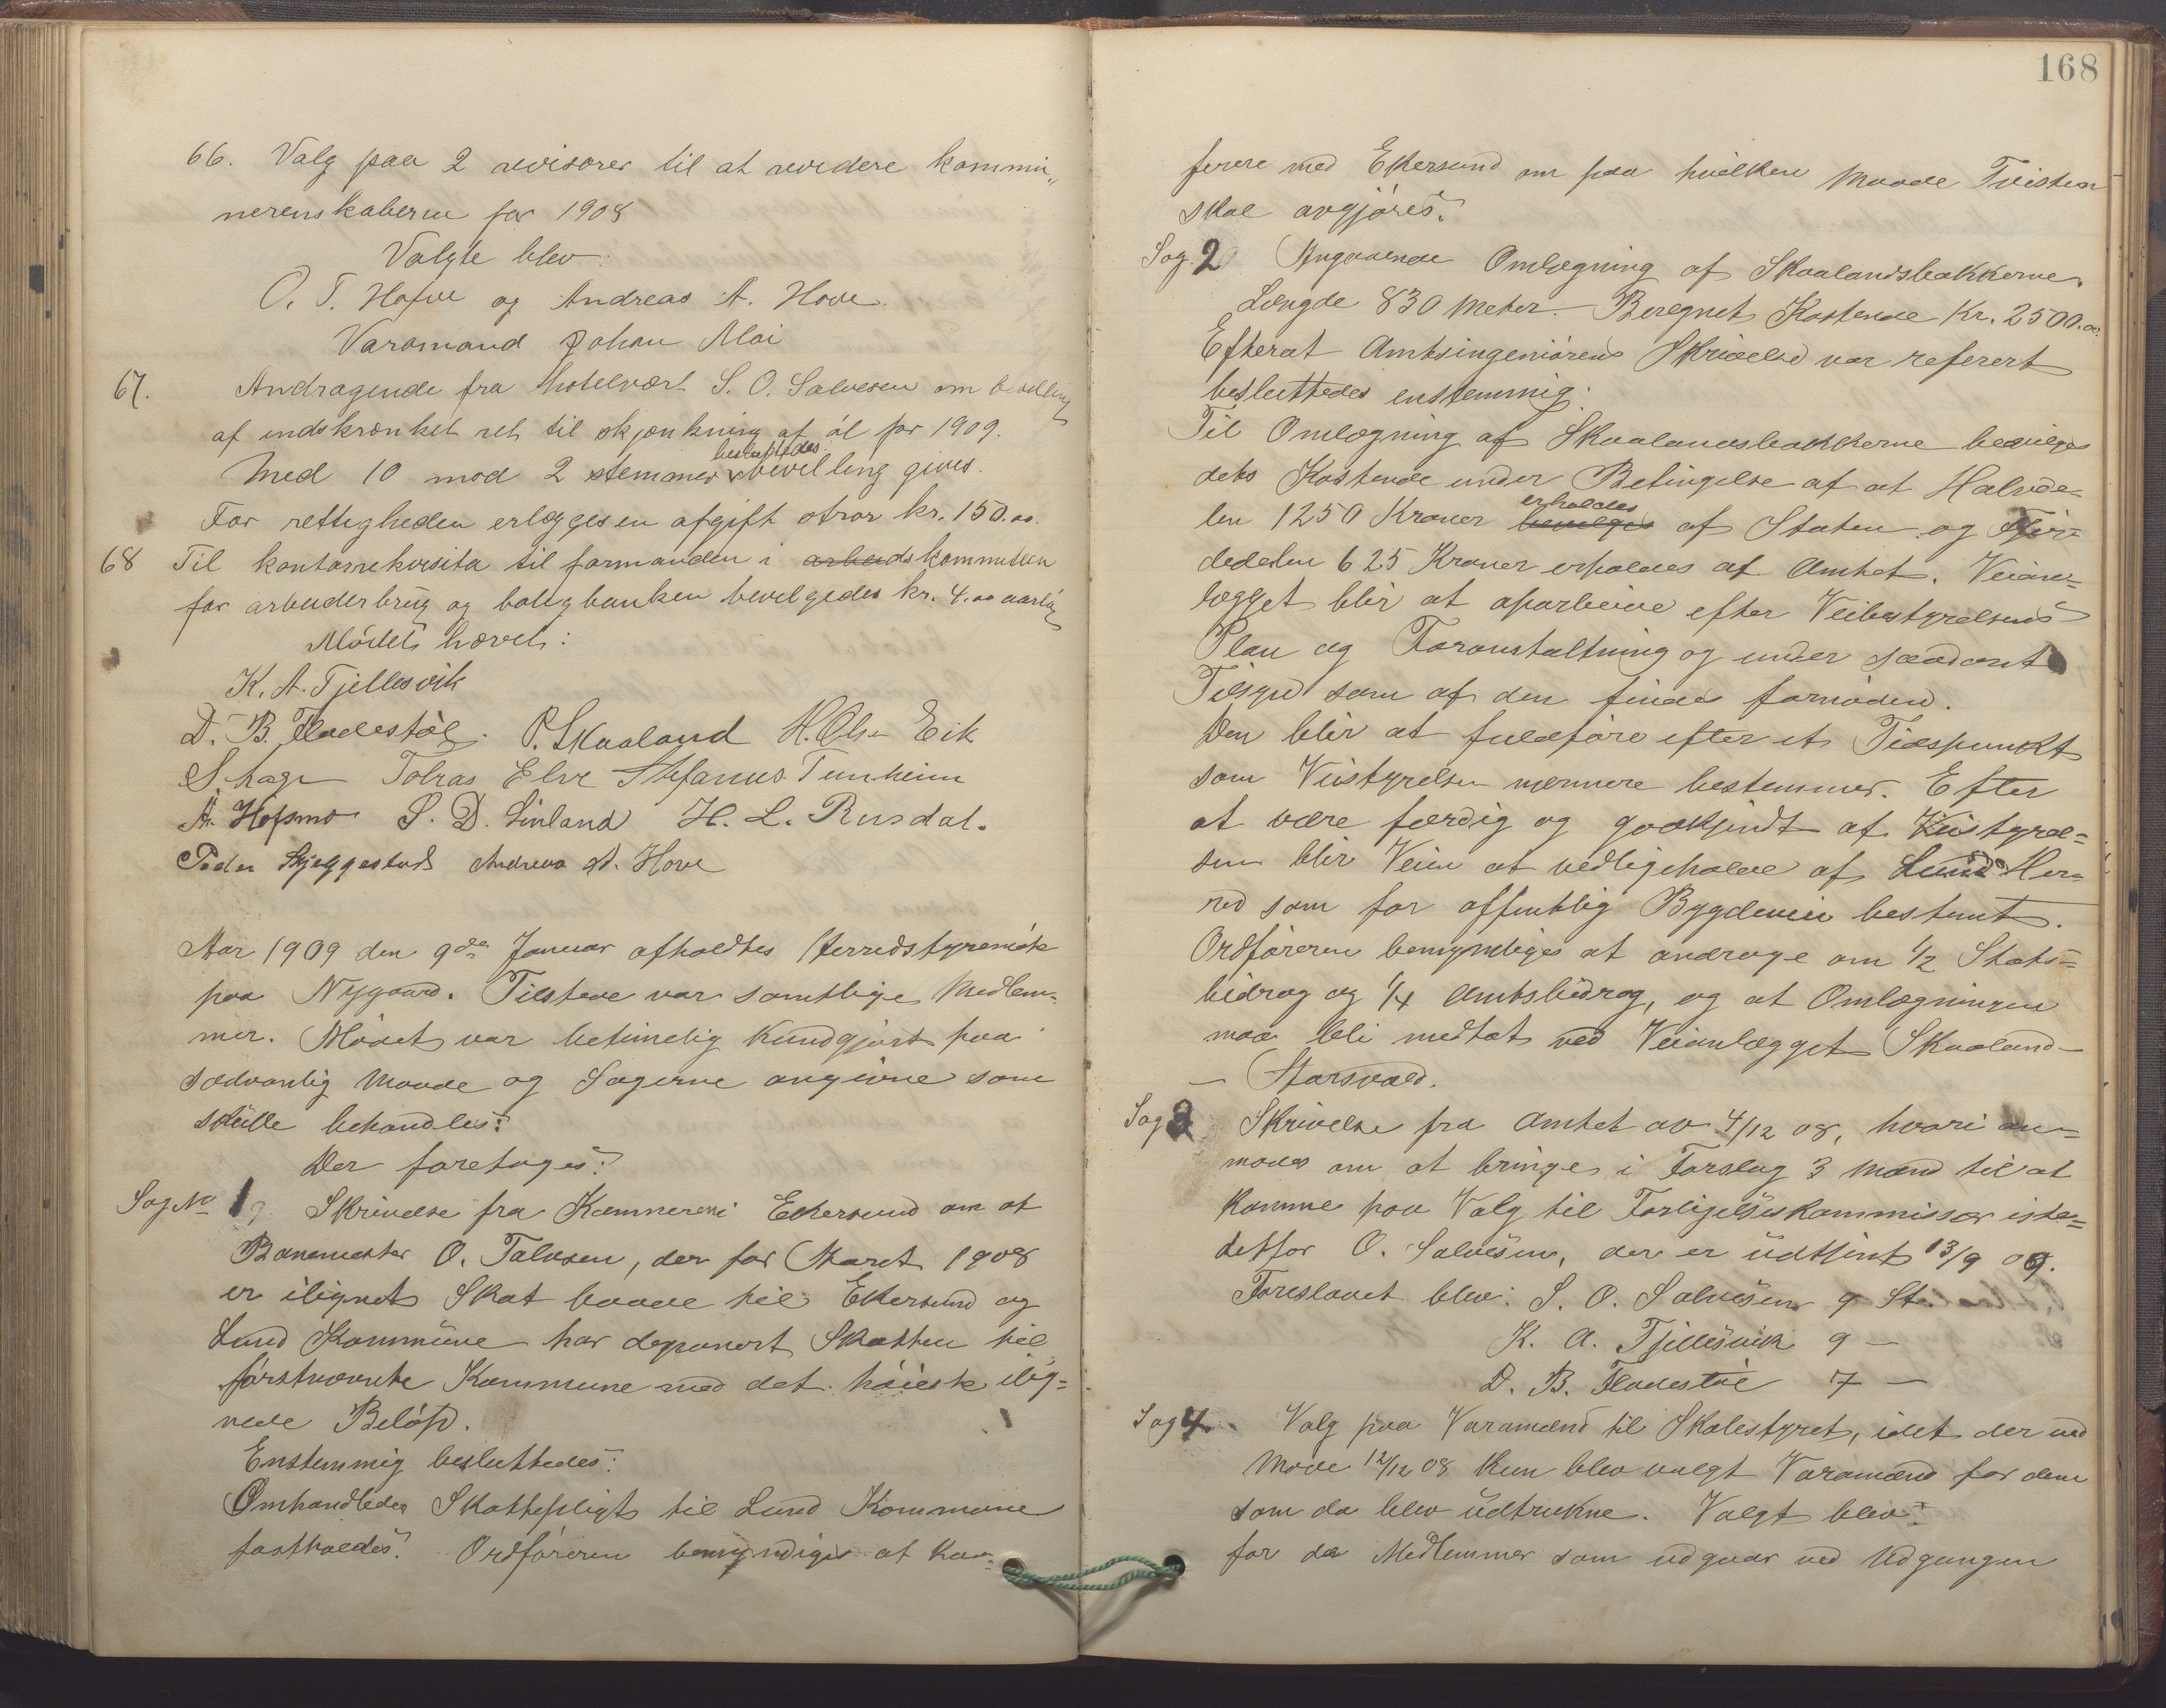 66. Valg paa 2 revisorer til at revidere kommu„
neregnskaberne for 1908
Valgte blev:
O. T. Hofve og Andreas A. Hove.
Varamand Johan Moi
67. Andragende fra hotelvært S. O. Salvesen om bevilling
af indskrænket ret til skjænkning af øl for 1909.
besluttedes
Med 10 mod 2 stemmer bevilling gives.
For rettigheden erlægges en afgift stror kr. 150.00.
68 Til kontorrekvisita til formanden i arbeids kommuteen
for arbeiderbrug og boligbanken bevilgedes kr. 4.00 aarlig
Mødet hævet:
K. A. Tjellesvik
D. B. Fladestøl. P. Skaaland H. Olsen Eik
S. Hage Tobias Elve Stefanus Tunheim
A. Hofsmo S. D. Linland H. L. Rusdal.
Peder Skjeggestad Andreas A. Hove
Aar 1909 den 9de Januar afholdtes Herredsstyremøte
paa Nygaard. Tilstede var samtlige Medlem-
mer. Mødet var betimelig Kundgjort paa
sædvanlig Maade og Sagerne angivne som
skulle behandles:
Der foretages:
Sag No 1 Skrivelse fra Kæmneren i Ekersund om at
Banemester O. Talvsen, der for Aaret 1908
er ilignet Skat baade til Ekersund og
Lund Kommune har deponert Skatten til
førstnævnte Kommune med det høieste ilig-
nede Beløp.
Enstemmig besluttedes:
Omhandledes Skattepligt til Lund Kommune
fastholdes. Ordføreren bemyndiges at kon-
168
ferere med Ekersund om paa hvilken Maade Tvisten
skal avgjøres.
Sag. 2 Angaaende Omlægning af Skaalandsbakkerne.
Længde 830 Meter. Beregnet Kostende Kr. 2500.00
Efterat Amtsingeniørens Skrivelse var referert
besluttedes enstemmig:
Til Omlægning af Skaalandsbakkerne bevilges
dets Kostende under Betingelse af at Halvde-
erholdes
len 1250 Kroner bevilges af Staten og Fjer-
dedelen 625 Kroner erholdes af Amtet. Veian-
lægget blir at oparbeide efter Veibestyrelsens
Plan og Foranstaltning og under saadant
Tilsyn som af den findes fornøden.
Den blir at fuldføre efter et Tidspunkt
som Veistyrelsen nærmere bestemmer. Efter
at være færdig og godkjendt af Veistyrel-
sen blir Veien at vedligeholde af Lund Her-
red som for offentlig Bygdevei bestemt.
Ordføreren bemyndiges at andrage om 1/2 Stats-
bidrag og 1/4 Amtsbidrag, og at Omlægningen
maa bli medtat ved Veianlægget Skaaland
– Storsvald.
Sag 3 Skrivelse fra Amtet av 4/12 08, hvori an-
modes om at bringe i Forslag 3 Mænd til at
komme paa Valg til Forligelseskommissær iste-
detfor O. Salvesen, der er udtjent 13/9 09.
Foreslaaet blev: S. O. Salvesen 9 St.
K. A. Tjellesvik 9 –
D. B. Fladestøl 7 –
Sag 4. Valg paa Varamænd til Skolestyret, idet der ved
Møde 12/12 08 kun blev valgt Varamænd for dem
som da blev udtrukne. Valgt blev:
for de Medlemmer som udgaar ved Udgangen